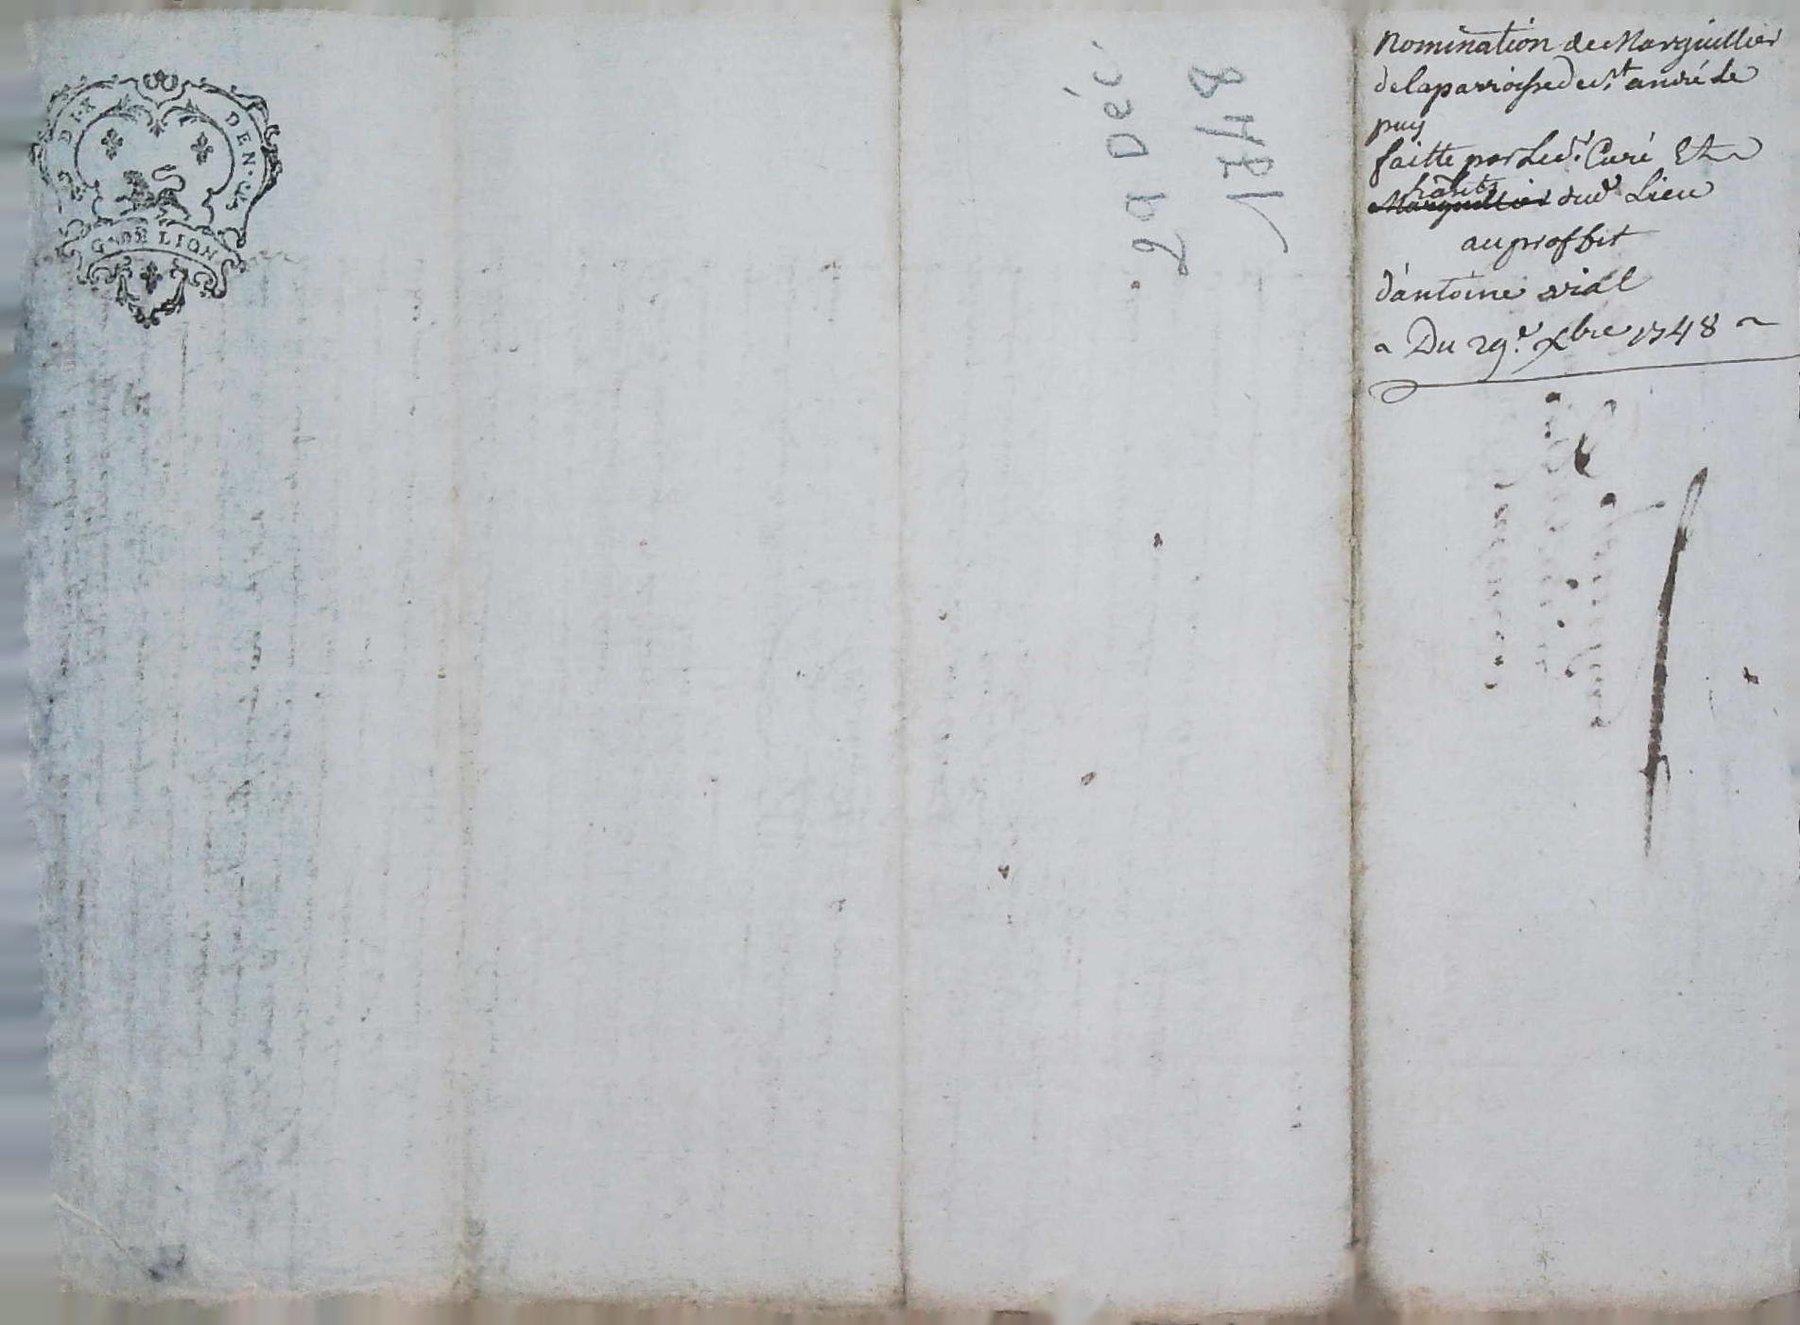 DIX DEN.
G. DE LION
29 Déc.
1748
Nomination de Marguillier
de la parroisse de St. andré le
puy
faitte par Led. Curé Et
habits
Marguillier dud. Lieu
au proffit
d'antoine vial
Du 29e. Xbre 1748